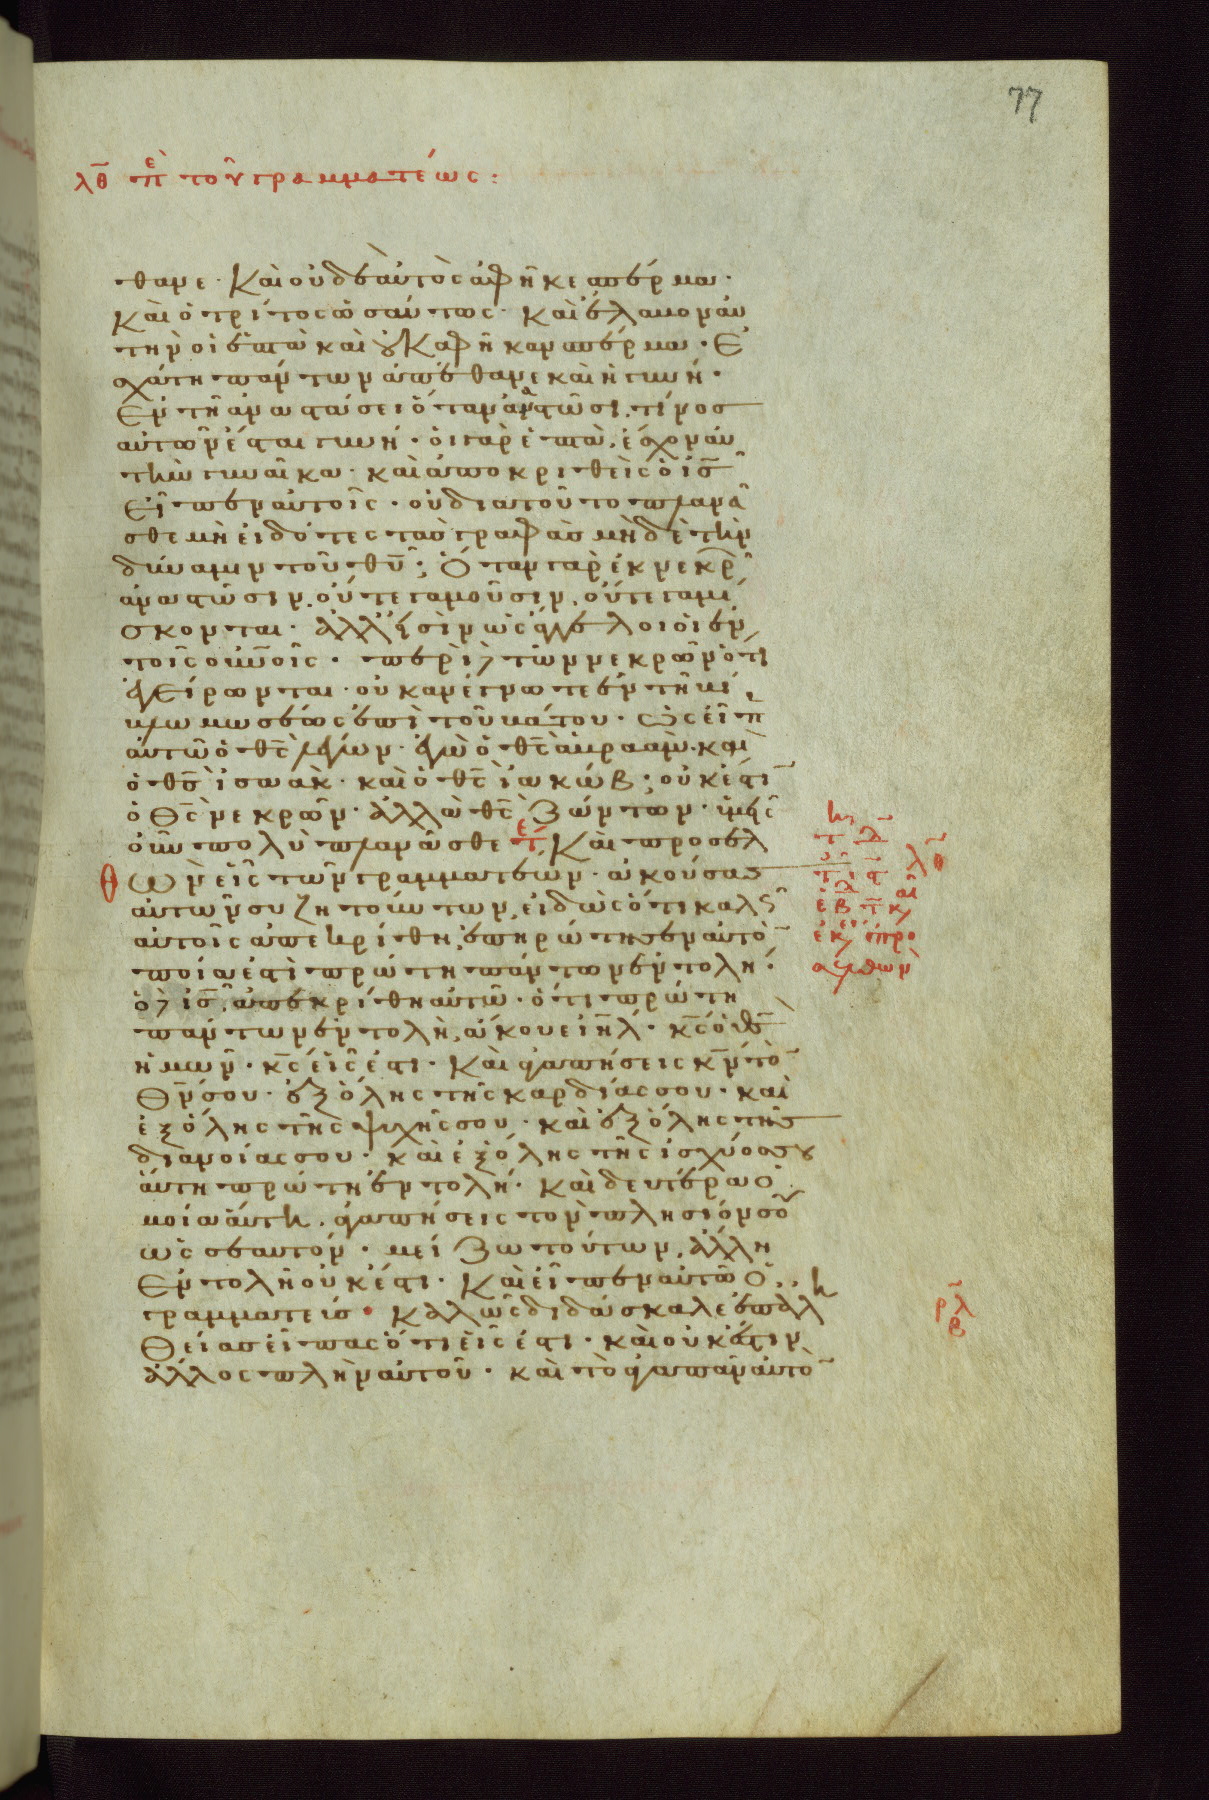 77
λθ̅ πὲ τοῦ γραμματέως:
θανε· Καὶ οὐδὲ αὐτὸς ἀφῆκε σπέρμα·
Καὶ ὁ τρίτος ὡσαύτως· Καὶ ἔλαβον αὐ
τὴν οἱ ἑπτὰ καὶ οὐκ ἀφῆκαν σπέρμα· Ἐ
σχάτη πάντων ἀπέθανε καὶ ἡ γυνή·
Ἐν τῇ ἀναστάσει ὅταν ἀναστῶσι, τίνος
αὐτῶν ἔσται γυνή· οἱ γὰρ ἑπτὰ, ἔσχον αὐ
τὴν γυναῖκα· καὶ ἀποκριθεὶς ὁ ις̅
Εἶπεν αὐτοῖς· οὐ διατοῦτο πλανᾶ
σθε μὴ εἰδότες τὰς γραφὰς μηδὲ τὴν
δύναμιν τοῦ θυ̅; Ὅταν γὰρ ἐκ νεκρ̑
ἀναστῶσιν, οὔτε γαμοῦσιν, οὔτε γαμί
σκονται· ἀλλ' εἰσὶν ὡς ἄγγελοι οἱ ἐν
τοῖς οὐνοῖς· περὶ δὲ τῶν νεκρῶν ὅτι
ἐγείρονται· οὐκ ἀνέγνωτε ἐν τῇ βί
βλω μωσέως ἐπὶ τοῦ βάτου· ὡς εἶπ
αὐτῶ ὁ θς̅ λέγων· ἐγὼ ὁ θς̅ ἀβρααμ· καὶ
ὁ θς̅ ἰσαάκ· καὶ ὁ θς̅ ἰακώβ; οὐκ ἔστι
ὁ Θς̅ νεκρῶν· ἀλλὰ θς̅ Ζώντων· ὑμεῖς
οὖν πολὺ πλανᾶσθε τέ Καὶ προσελ
Θὼν εἷς τῶν γραμματέων· ἀκούσας
αὐτῶν συζητούντων, εἰδὼς ὅτι καλῶς
αὐτοῖς ἀπεκρίθη, ἐπηρώτησεν αὐτὸ
ποία ἐστὶ πρώτη πάντων ἐντολή·
ὁ δὲ ις̅, ἀπεκρίθη αὐτῶ· ὅτι πρώτη
πάντων ἐντολὴ, ἄκουε ιηλ̅· κς̅ ὁ θς̅
ἡμῶν· κς̅ εἷς ἐστι· Καὶ ἀγαπήσεις κν̅ τὸ
Θν̅ σου· ἐξ ὅλης τῆς καρδίας σου· καὶ
ἐξ ὅλης τῆς ψυχῆς σου· καὶ ἐξ ὅλης τῆς
διανοίας σου· καὶ ἐξ ὅλης τῆς ἰσχύος σου
αὕτη πρώτη ἐντολή· Καὶ δευτέρα ὁ
μοία αὕτη. ἀγαπήσεις τὸν πλησίον σου
ὡς σεαυτόν· μείζω τούτων, ἄλλη
Ἐντολὴ οὐκ ἔστι· Καὶ εἶπεν αὐτῶ ὁ
γραμματεύς· Καλῶς διδάσκαλε ἐπ' ἀλη
Θείας εἶπας ὅτι εἷς ἐστι· καὶ οὐκ ἔστιν
ἄλλος πλὴν αὐτοῦ· καὶ τὸ ἀγαπᾶν αὐτὸ
λθ̅
ρλ̅
β